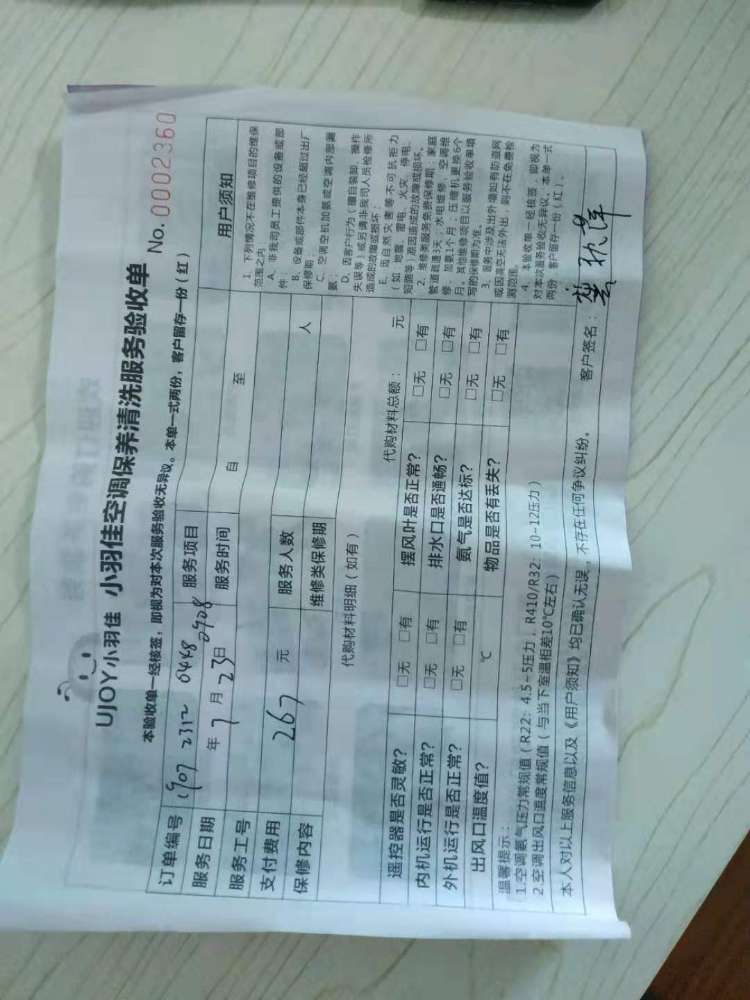 UJOY小羽佳 小羽佳空调保养清洗服务验收单
No. 0002360
本验收单一经核签，即视为对本次服务验收无异议。本单一式两份，客户留存一份（红）
订单编号 1907 2312 0448 0908 服务项目
服务日期 年 7 月 23 日 服务时间 自 至
服务工号
支付费用 267 元 服务人数 人
保修内容 维修类保修期
代购材料明细（如有） 代购材料总额： 元
遥控器是否灵敏？ □无 □有 摆风叶是否正常？ □无 □有
内机运行是否正常？ □无 □有 排水口是否通畅？ □无 □有
外机运行是否正常？ □无 □有 氨气是否达标？ □无 □有
出风口温度值？ ℃ 物品是否有丢失？ □无 □有
用户须知
1. 下列情况不在维修项目的维保
范围之内
A. 非我司员工提供的设备或部
件；
B. 设备或部件本身已经超过出厂
保修期；
C. 空调空机加氨或空调内部漏
氨；
D. 因客户行为（擅自装卸、操作
失误等）或另请非我司人员检修所
造成的故障或损坏；
E. 因自然灾害等不可抗拒力
（如 地震、雷电、火灾、停电、
短路等）原因造成的故障或损坏。
2. 维修类服务免费保修期：家庭
管道疏通3天；水电维修、空调维
修、加氨1个月；压缩机更换6个
月。其他维修项目以服务验收单填
写的保修期为准。
3. 服务中涉及室外墙如有防盗网
或因高空无法外出，则不在免费检
测范围。
4. 本验收单一经核签，即视为
对本次服务验收无异议。本单一式
两份，客户留存一份（红）。
温馨提示：
1.空调氨气压力常规值（R22：4.5~5压力，R410/R32：10-12压力）
2.空调出风口温度常规值（与当下室温相差10℃左右）
本人对以上服务信息以及《用户须知》均已确认无误，不存在任何争议纠纷。 客户签名：